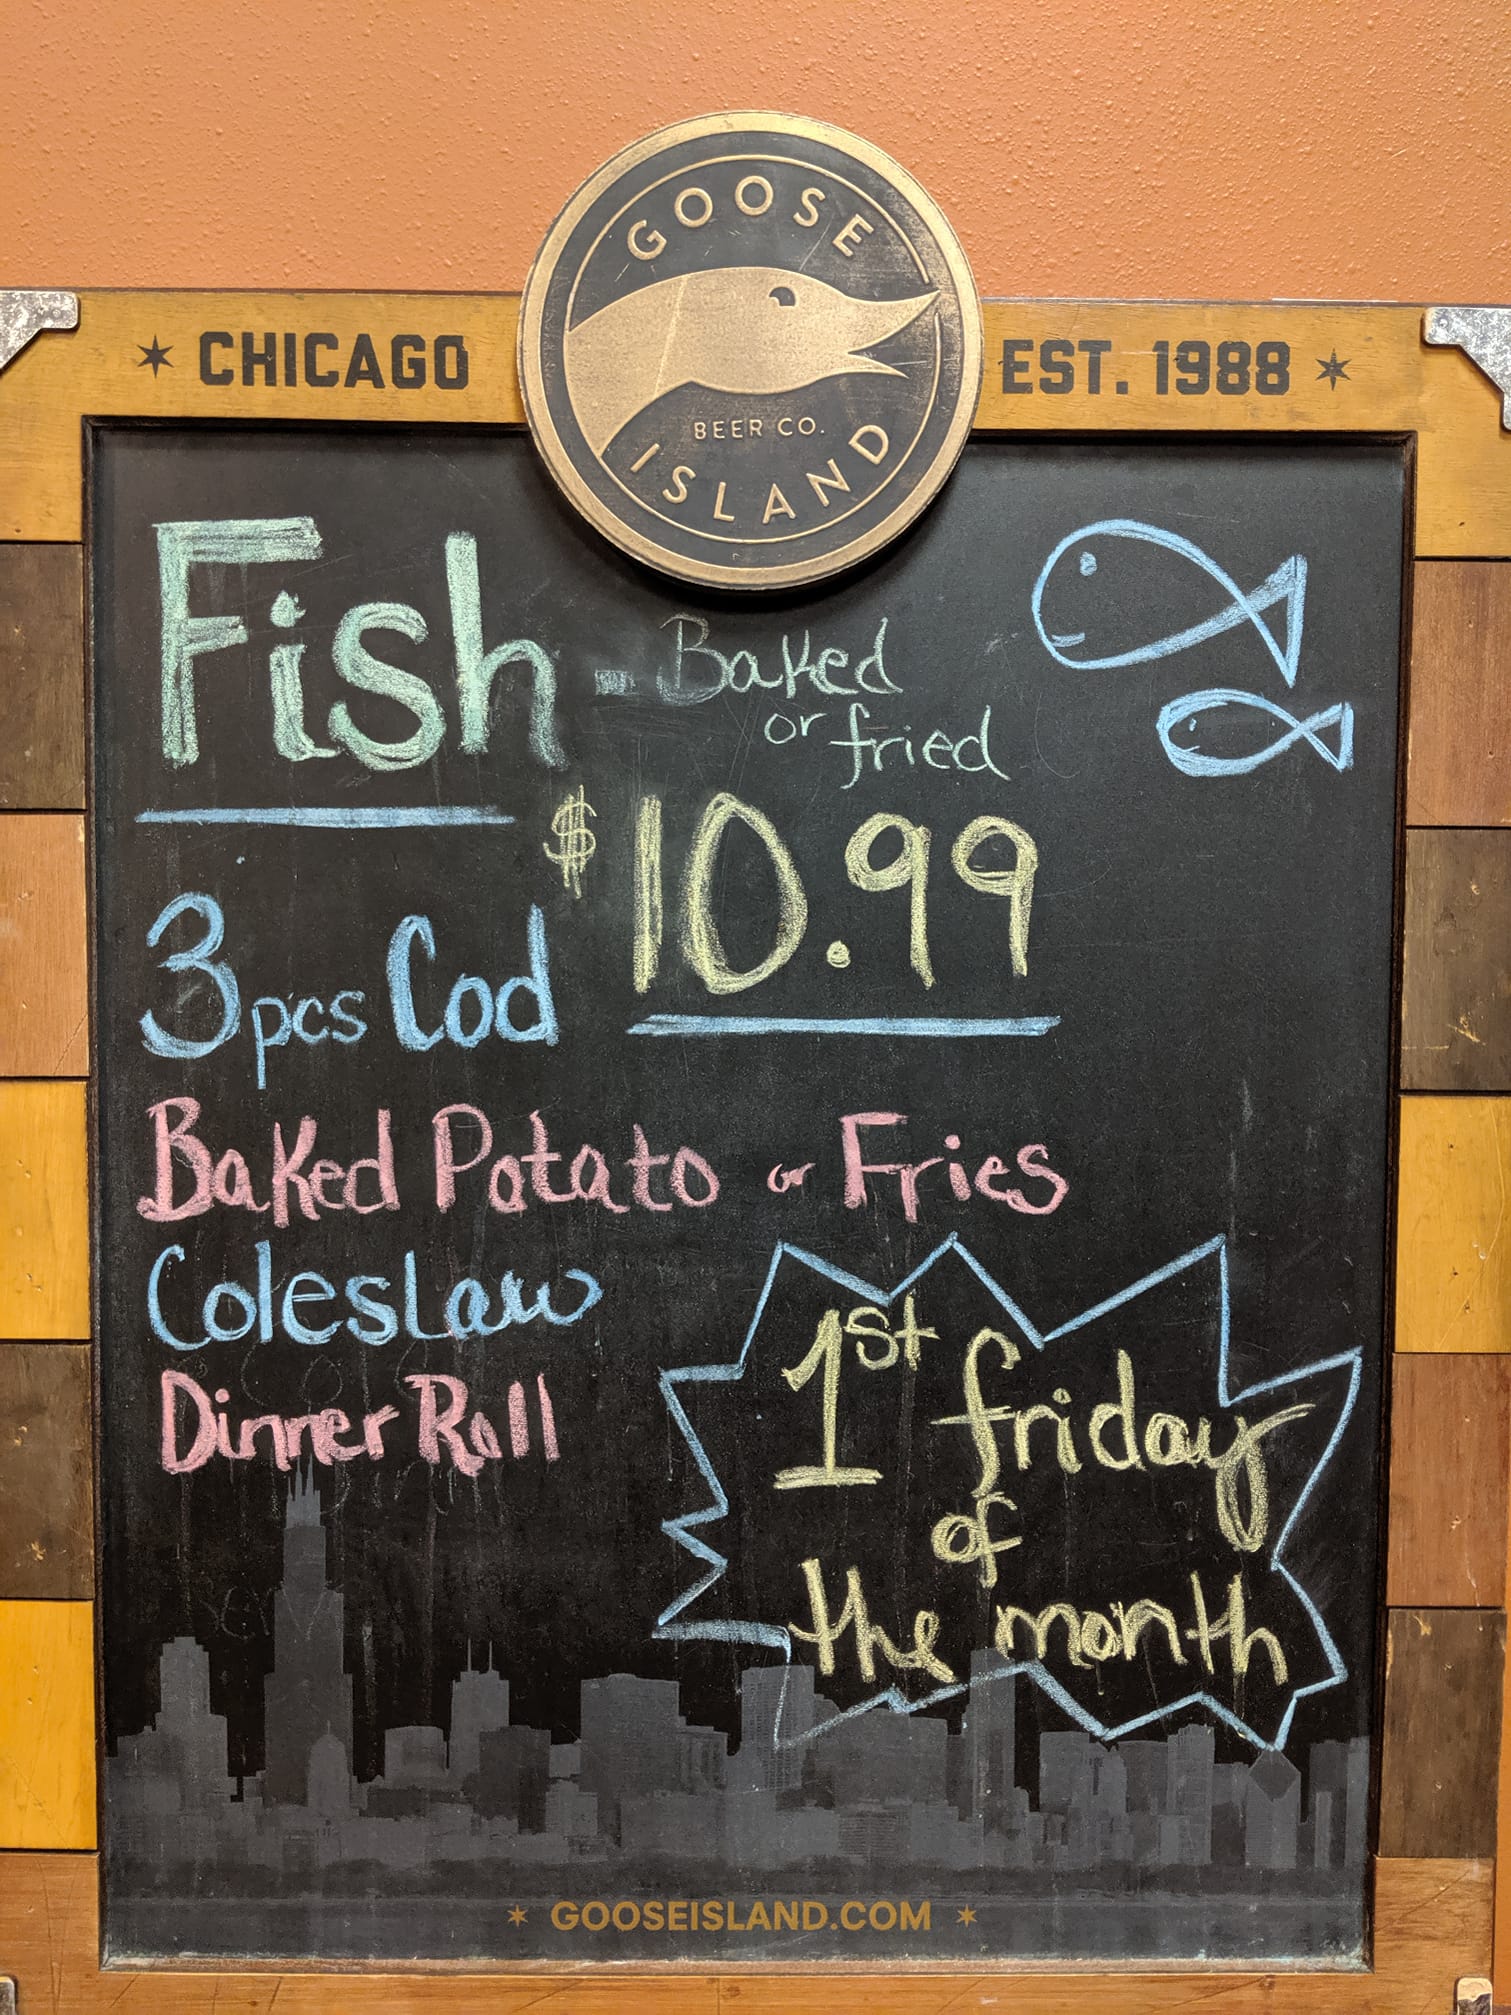 GOOSE
BEER CO.
ISLAND
CHICAGO
EST. 1988
Fish - Baked
or fried
$10.99
3pcs Cod
Baked Potato or Fries
Coleslaw
Dinner Roll
1st friday
of
the month
GOOSEISLAND.COM